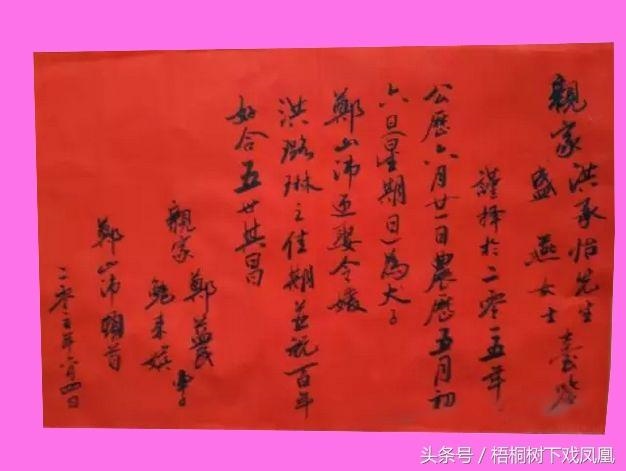 親家洪承怡先生
盛燕女士臺鉴
謹擇於二零一五年
公歷六月廿一日農歷五月初
六日星期日為大子
鄭山沛迎娶令嫒
洪璐琳之佳期並祝百年
好合五世其昌
親家鄭益民
鲍来
鄭山沛頓首
二零一五年六月四日
头条号／梧桐树下戏凤凰